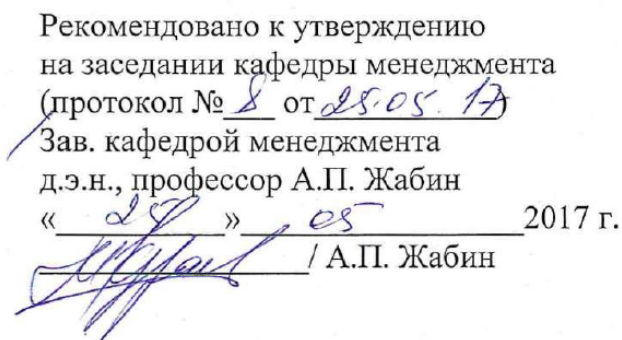 Рекомендовано к утверждению
на заседании кафедры менеджмента
(протокол № 8 от 25.05.17)
Зав. кафедрой менеджмента
д.э.н., профессор А.П. Жабин
«25» 05 2017 г.
/ А.П. Жабин